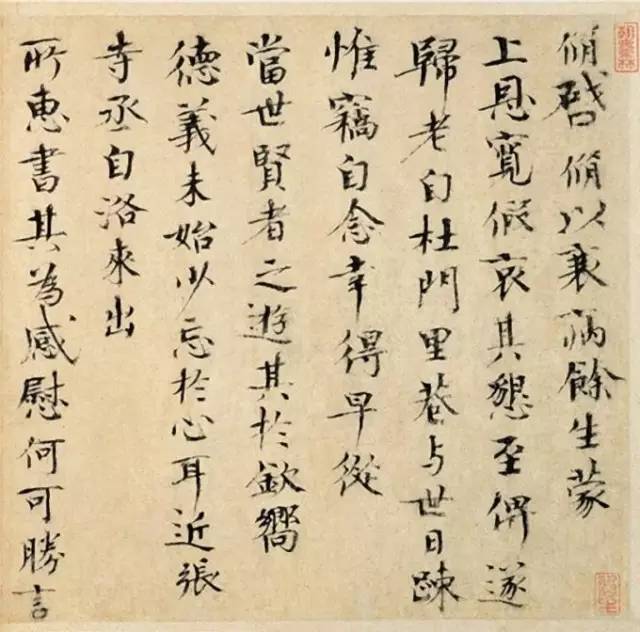 脩啓脩以衰病餘生蒙
上恩寛假哀其懇至俾遂
歸老自杜門里巷与世日踈
惟竊自念幸得早從
當世賢者之遊其於欽嚮
德義未始少忘於心耳近張
寺丞自洛來出
所惠書其為感慰何可勝言